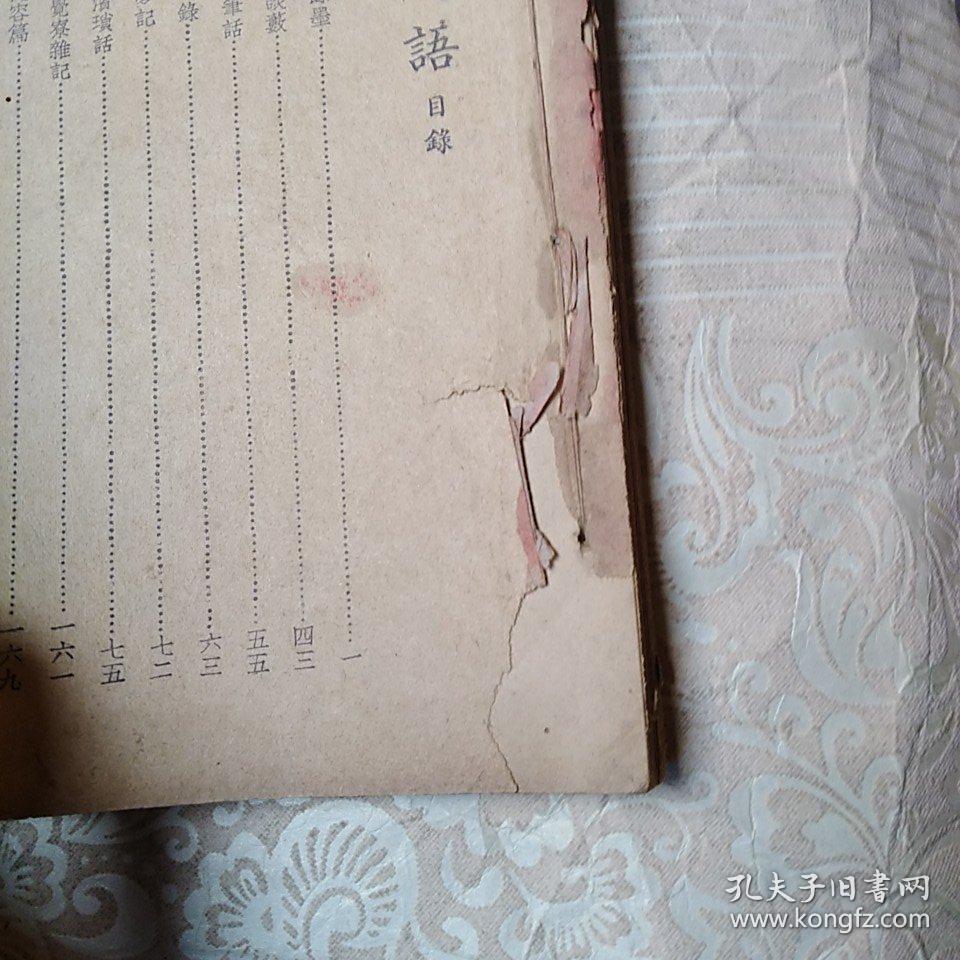 語 目錄
墨 一
談藪 四三
筆話 五五
錄 六三
記 七二
瑣話 七五
覺寮雜記 一六一
篇 一六九
孔夫子旧書网
www.kongfz.com